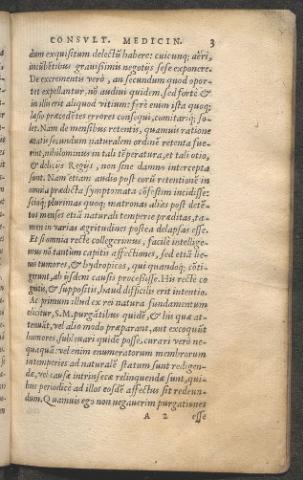 CONSVLT. MEDICIN. 3
dam exquisitum delectũ habere: cuicunq; aëri,
incũbẽtibus grauissimis negotijs sese exponere.
De excrementis verò, an secundum quod opor-
tet expellantur, nõ audiui quidem, sed fortè &
in illis erit aliquod vitium: ferè enim ista quoq;
laso præcedẽtes errores consequi, comitariq; so-
let. Nam de mensibus retentis, quamuis ratione
ætatis secundum naturalem ordinẽ retenta fue-
rint, nihilominus in tali tẽperatura, et tali otio,
& delitijs Regijs, non sine damno intercepta
sunt. Nam etiam audio post eorũ retentionẽ in
omnia prædicta symptomata cõfestim incidisse:
sicuti plurimas quoq; matronas alias post deten-
tos menses etiã naturali temperie præditas, ta-
men in varias ægritudines postea delapsas esse.
Et si omnia recte collegerimus, facile intellige-
mus nõ tantùm capitis affectiones, sed etiã lie-
nis tumores, & hydropicos, qui quandoq; cõti-
gerunt, ab ijsdem causis processisse. His rectè co
gnitis, & suppositis, haud difficilis erit intentio.
Ac primum illud ex rei natura fundamentum
elicitur, S. M. purgãtibus quidẽ, & his quæ at-
tenuãt, vel alio modo præparant, aut excoquũt
humores, subleuari quidẽ posse, curari verò ne-
quaquã: vel enim enumeratorum membrorum
intemperies ad naturalẽ statum sunt redigen-
dæ, vel causæ intrinsecæ relinquendæ sunt, qui-
bus periodicè ad illos eosdẽ affectus sit redeun-
dum. Quamuis ego non negauerim purgationes
A 2 esse